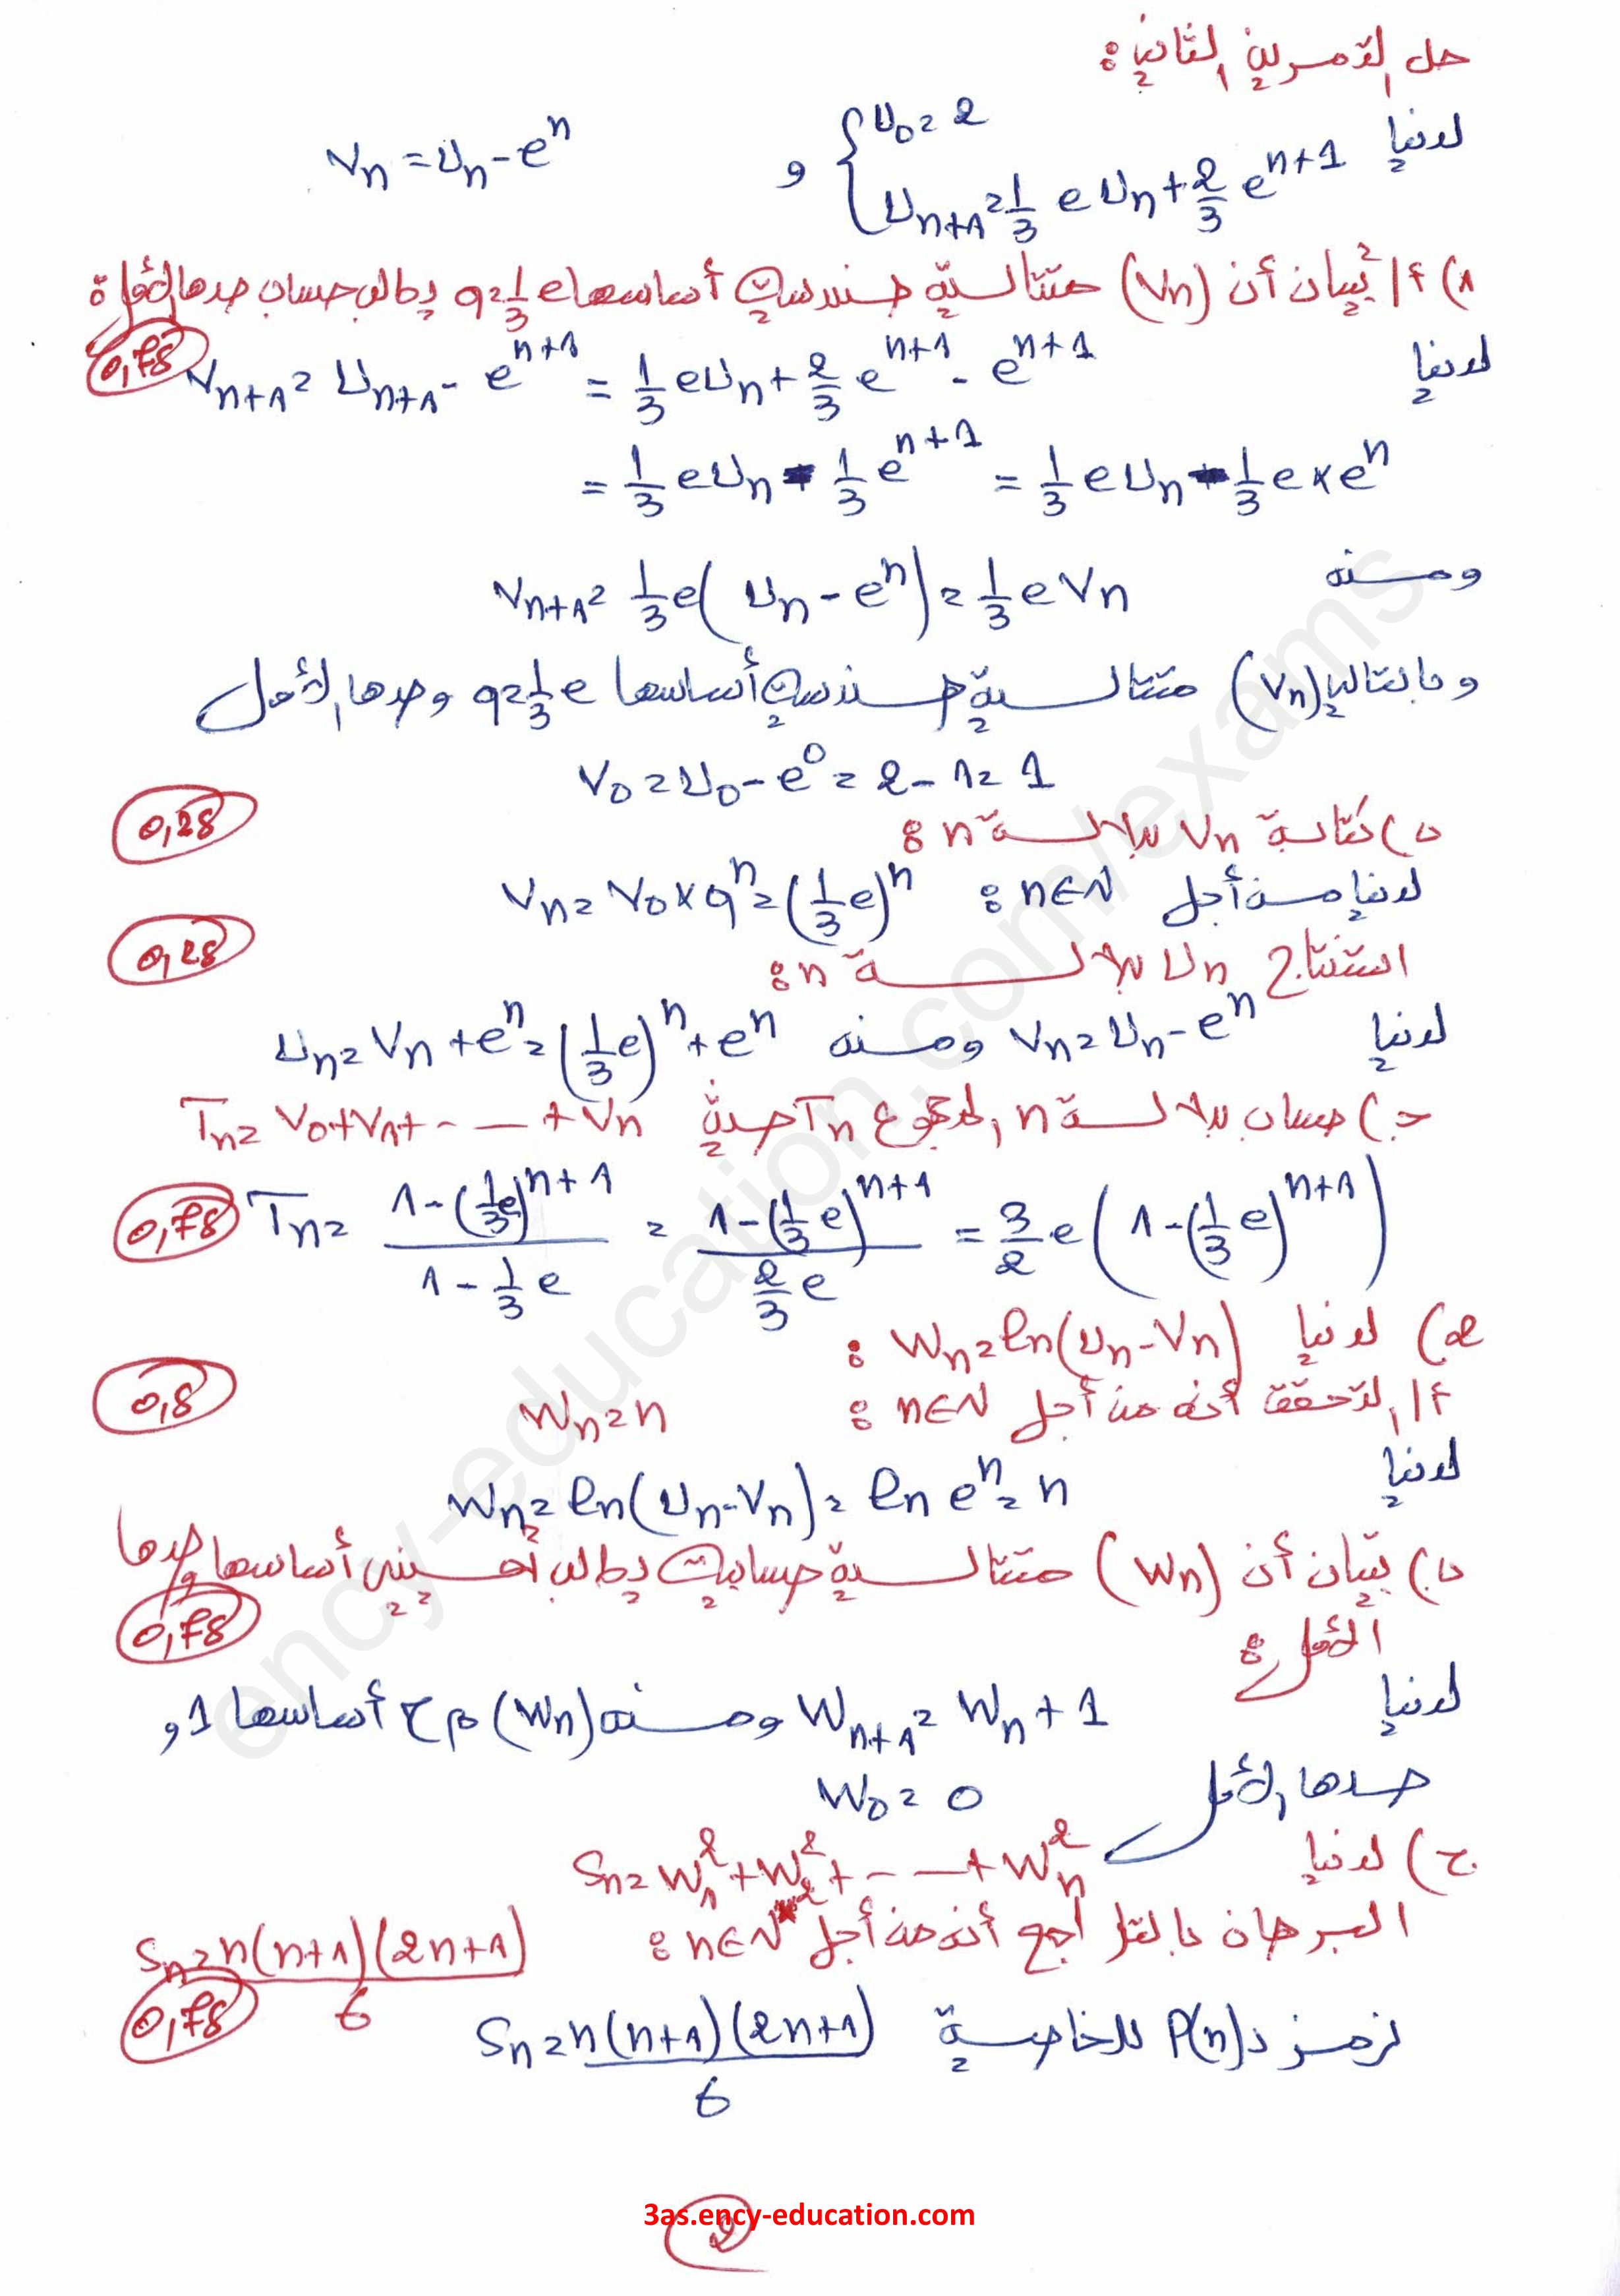 حل التمرين الثاني :
لدينا { U₀ = 2 ; Uₙ₊₁ = 1/3 e Uₙ + 2/3 eⁿ⁺¹ و Vₙ = Uₙ - eⁿ
1) أ/ تبيان أن (Vₙ) متتالية هندسية أساسها q = 1/3 e يطلب حساب حدها الأول
0,75
لدينا Vₙ₊₁ = Uₙ₊₁ - eⁿ⁺¹ = 1/3 eUₙ + 2/3 eⁿ⁺¹ - eⁿ⁺¹
= 1/3 eUₙ - 1/3 eⁿ⁺¹ = 1/3 eUₙ - 1/3 e × eⁿ
ومنه
Vₙ₊₁ = 1/3 e(Uₙ - eⁿ) = 1/3 e Vₙ
وبالتالي (Vₙ) متتالية هندسية أساسها q = 1/3 e وحدها الأول
V₀ = U₀ - e⁰ = 2 - 1 = 1
0,25
ب) كتابة Vₙ بدلالة n :
لدينا من أجل n∈ℕ : Vₙ = V₀ × qⁿ = (1/3 e)ⁿ
0,25
استنتاج Uₙ بدلالة n :
لدينا Vₙ = Uₙ - eⁿ ومنه Uₙ = Vₙ + eⁿ = (1/3 e)ⁿ + eⁿ
ج) حساب بدلالة n المجموع Tₙ حيث Tₙ = V₀ + V₁ + - — + Vₙ
0,75 Tₙ = (1 - (1/3 e)ⁿ⁺¹)/(1 - 1/3 e) = (1 - (1/3 e)ⁿ⁺¹)/(2/3 e) = 3/2 e (1 - (1/3 e)ⁿ⁺¹)
2) لدينا Wₙ = ln(Uₙ - Vₙ) :
0,5
أ/ التحقق أنه من أجل n∈ℕ : Wₙ = n
لدينا
Wₙ = ln(Uₙ - Vₙ) = ln eⁿ = n
ب) تبيان أن (Wₙ) متتالية حسابية يطلب تعيين أساسها وحدها
0,75
الأول :
لدينا Wₙ₊₁ = Wₙ + 1 ومنه (Wₙ) م ح أساسها 1 و
حدها الأول W₀ = 0
ج) لدينا Sₙ = W₁² + W₂² + - — + Wₙ²
البرهان بالتراجع أنه من أجل n∈ℕ* : Sₙ = n(n+1)(2n+1)/6
0,75
نرمز ب P(n) للخاصية Sₙ = n(n+1)(2n+1)/6
3as.ency-education.com
2
ency-education.com/exams